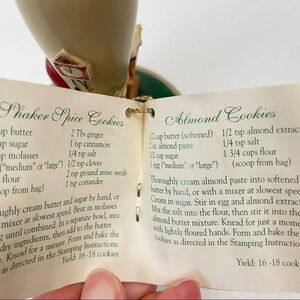 Shaker Spice Cookies
up butter 2 Tbs ginger
up sugar 1 T cinnamon
up molasses 1/4 tsp salt
("medium" or "large") 1/2 tsp cloves
flour 2 ground anise seeds
scoop from bag) 1 tsp coriander
roughly cream butter and sugar by hand, or
mixer at slowest speed. Beat in molasses
g until combined. In a separate bowl, mix
dry ingredients, then add to the butter
e. Knead for a minute. Form and bake the
as directed in the Stamping Instructions.
Yield: 16-18 cook
Almond Cookies
1/2 cup butter (softened) 1/2 tsp almond extrac
2 oz. almond paste 1/4 tsp salt
1/2 cup sugar 1 3/4 cups flour
1 egg ("medium" or "large") (scoop from bag)
Thoroughly cream almond paste into softened
butter by hand, or with a mixer at slowest spee
Cream in sugar. Stir in egg and almond extract
Mix the salt into the flour, then stir it into the
almond butter mixture. Knead for just a momen
with lightly floured hands. Form and bake the
cookies as directed in the Stamping Instruction
Yield: 16 -18 cook